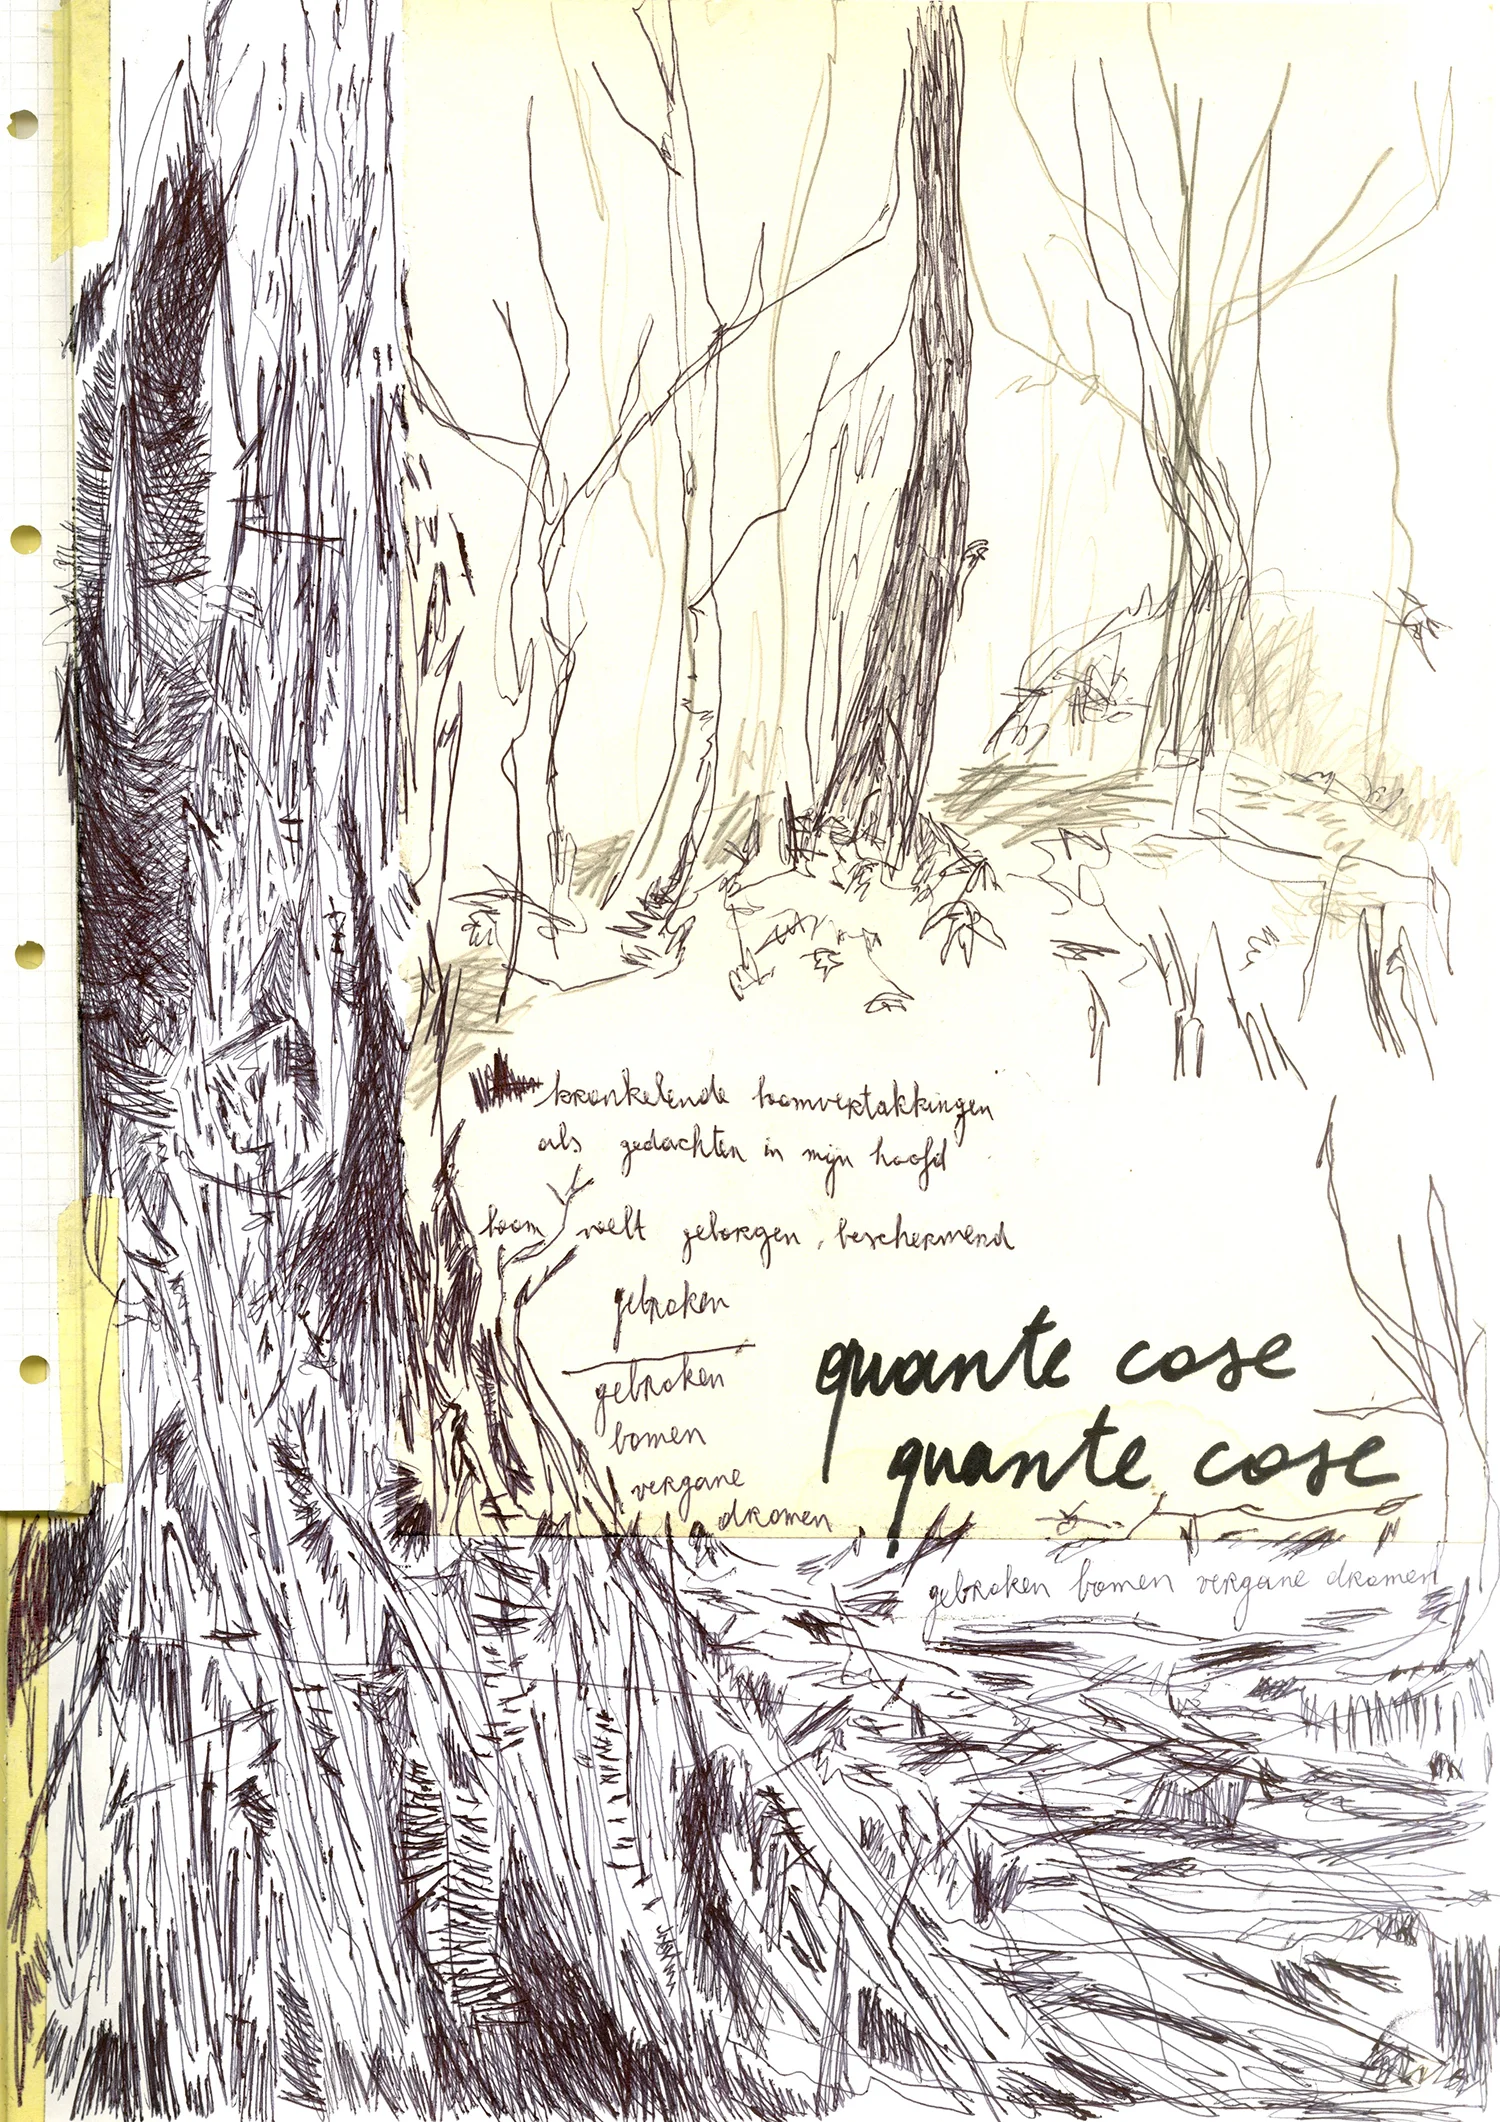 kronkelende boomvertakkingen
als gedachten in mijn hoofd
boom voelt geborgen, beschermend
gebroken
gebroken
bomen
vergane
dromen
quante cose
quante cose
gebroken bomen vergane dromen